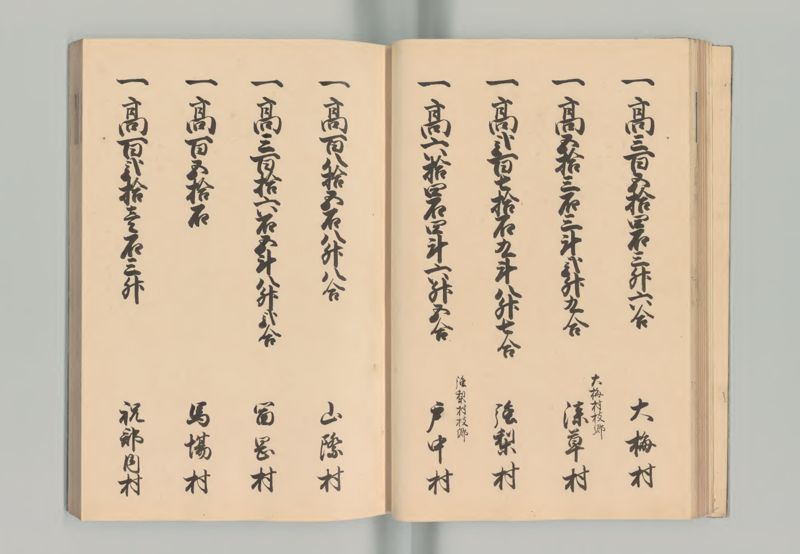 一高三百五拾四石三升六合
大梅村
一高五拾三石三斗弐升九合
大梅村枝郷
漆草村
一高弐百七拾石九斗八升七合
強梨村
一高六拾四石四斗六升五合
強梨村枝郷
戸中村
一高百八拾五石八升八合
山際村
一高三百拾六石五斗八升弐合
留岡村
一高百五拾石
馬場村
一高百弐拾壱石三升
祝部内村